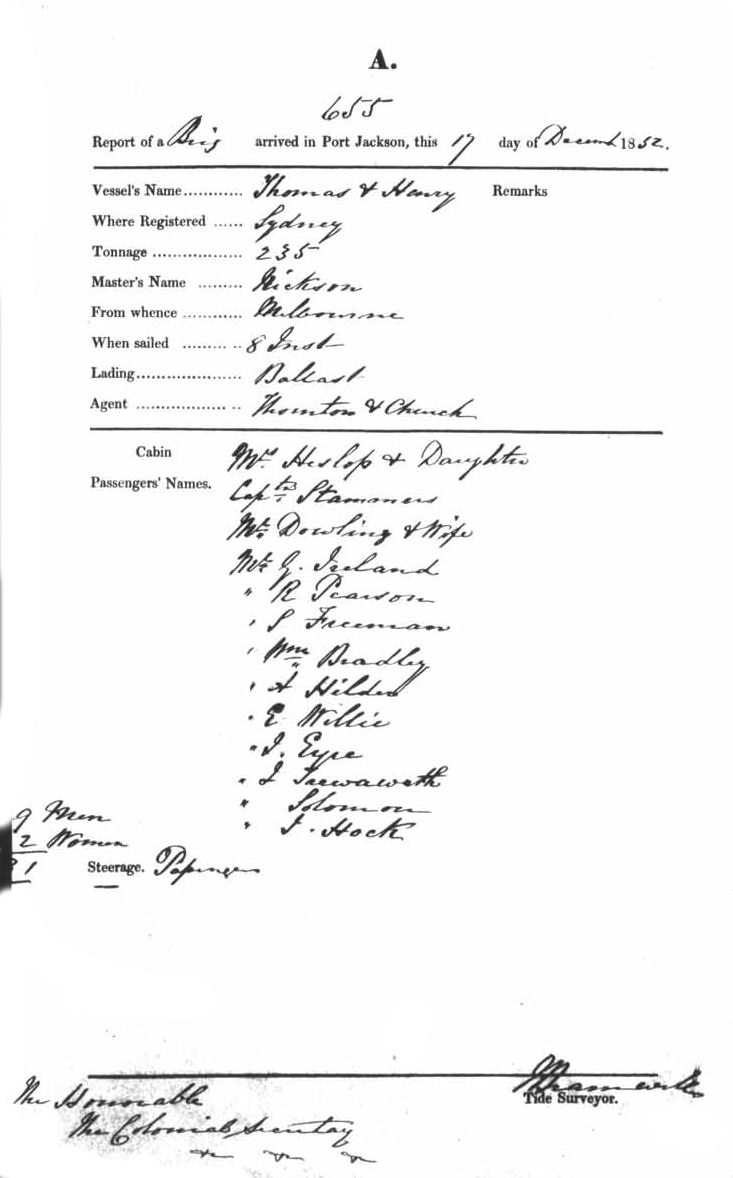 A.
655
Report of a Brig arrived in Port Jackson, this 17 day of Decemb 1852.
Vessel's Name............ Thomas & Henry Remarks
Where Registered ...... Sydney
Tonnage .................. 235
Master's Name ......... Nickson
From whence ............ Melbourne
When sailed ......... .. 8 Inst
Lading..................... Ballast
Agent .................. .. Thornton & Church
Cabin
Passengers' Names.
Mrs. Heslop & Daughter
Captn. Stammers
Mr. Dowling & Wife
Mr. G. Ireland
" R Pearson
" S Freeman
" Wm Bradley
" A Hilder
" E Willie
" J. Eyre
" J
" Solomon
" J. Hock
9 Men
2 Women
1
Steerage. Passengers
Tide Surveyor.
The Honorable
The Colonial Secretay